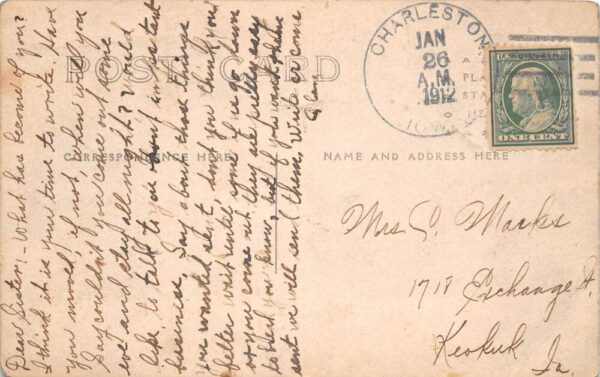 POST CARD
CORRESPONDENCE HERE
NAME AND ADDRESS HERE
CHARLESTON
JAN
26
A.M.
1912
IOWA
U.S. POSTAGE
ONE CENT
Dear Sister:- What has become of you?
I think it is your time to write. Have
you moved, if not, when will you
Say couldn't you come out some
eve and stay all night? Would
like to talk to you about important
business. Say about those things
you wanted us to, don't you think you'd
better wait until some of us go down
or you come out they are pretty easy
to bust you know, but if you want
sent we will send them. Write or come
Mrs C. Marks
1717 Exchange St.
Keokuk
Ia.